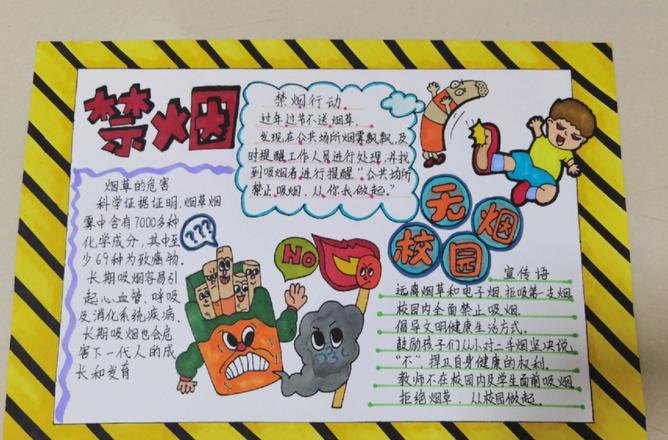 禁烟
禁烟行动
过年过节不送烟草。
发现在公共场所烟雾飘飘,及
时提醒工作人员进行处理,并找
到吸烟者进行提醒“公共场所
禁止吸烟,从你我做起。”
烟草的危害
科学证据证明,烟草烟
雾中含有7000多种
化学成分,其中至
少69种为致癌物。
长期吸烟容易引
起心血管、呼吸
及消化系统疾病,
长期吸烟也会危
害下一代人的成
长和发育
???
NO
无烟
校园
宣传语
远离烟草和电子烟,拒吸第一支烟
校园内全面禁止吸烟.
倡导文明健康生活方式.
鼓励孩子们从小对二手烟坚决说
“不”捍卫自身健康的权利.
教师不在校园内及学生面前吸烟
拒绝烟草,从校园做起.